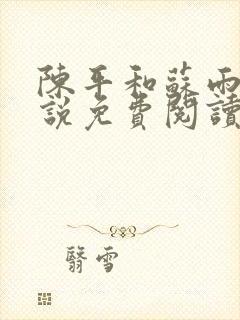 陳平和蘇雨
說免費閱讀
翳雪